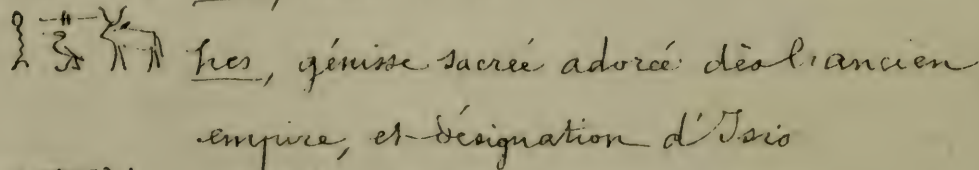 hes, génisse sacrée adorée dès l'ancien
empire, et désignation d'Isis